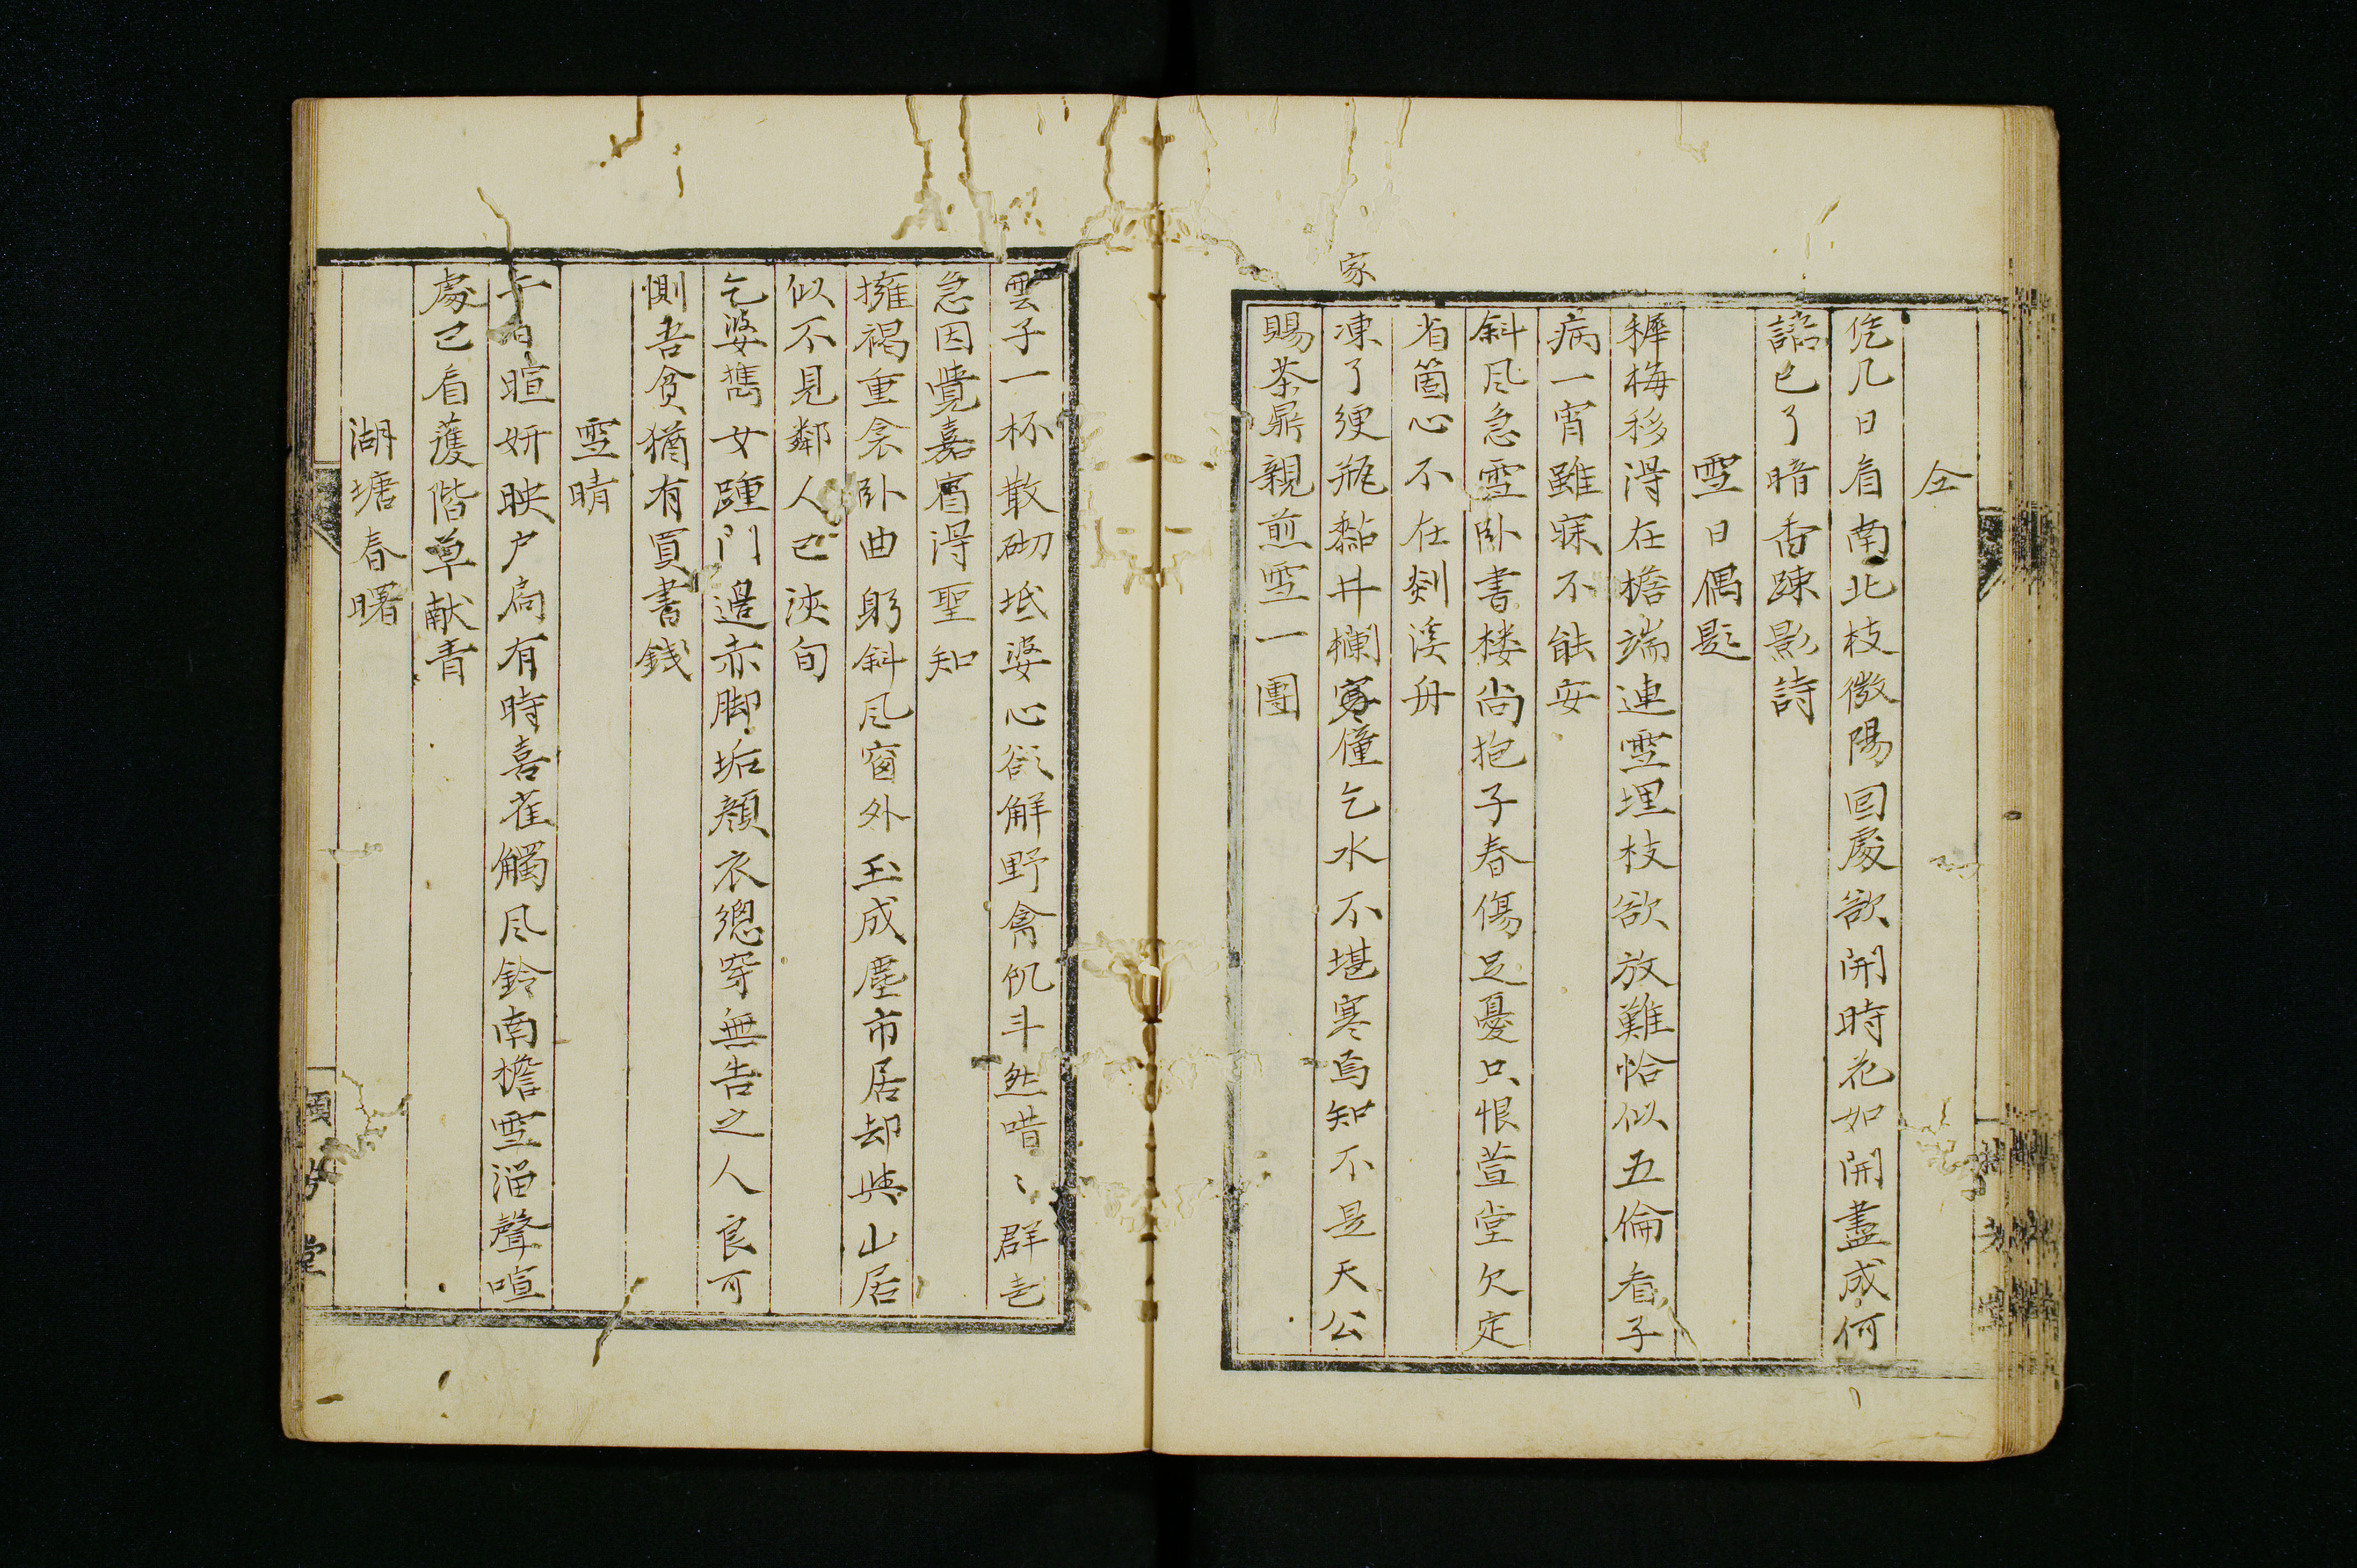 仝
俙几日看南北枝微陽回處欲開時花如開盡成何
語已了暗香踈影詩
雪日偶題
穉梅移得在檐端連雪埋枝欲放難恰似五倫看子
病一宵雖寐不能安
斜风急雪卧書楼尚抱子春傷足憂只恨萱堂欠定
省箇心不在剡溪舟
家
凍了綆瓶黏井欄僮乞水不堪寒焉知不是天公
賜茶鼎親煎雪一團
雲子一杯散砌坻婆心欲解野禽飢斗然唶〻群起
急因覺嘉賓得聖知
擁褐重衾卧曲躬斜风窗外玉成塵市居却與山居
似不見鄰人已浹旬
乞婆攜女踵門邊赤脚垢顔衣總穿無告之人良可
惻吾貧猶有買書銭
雪晴
午日暄妍映户扃有時喜雀觸风鈴南檐雪溜聲喧
處已看蘐階草献青
湖塘春曙
堂